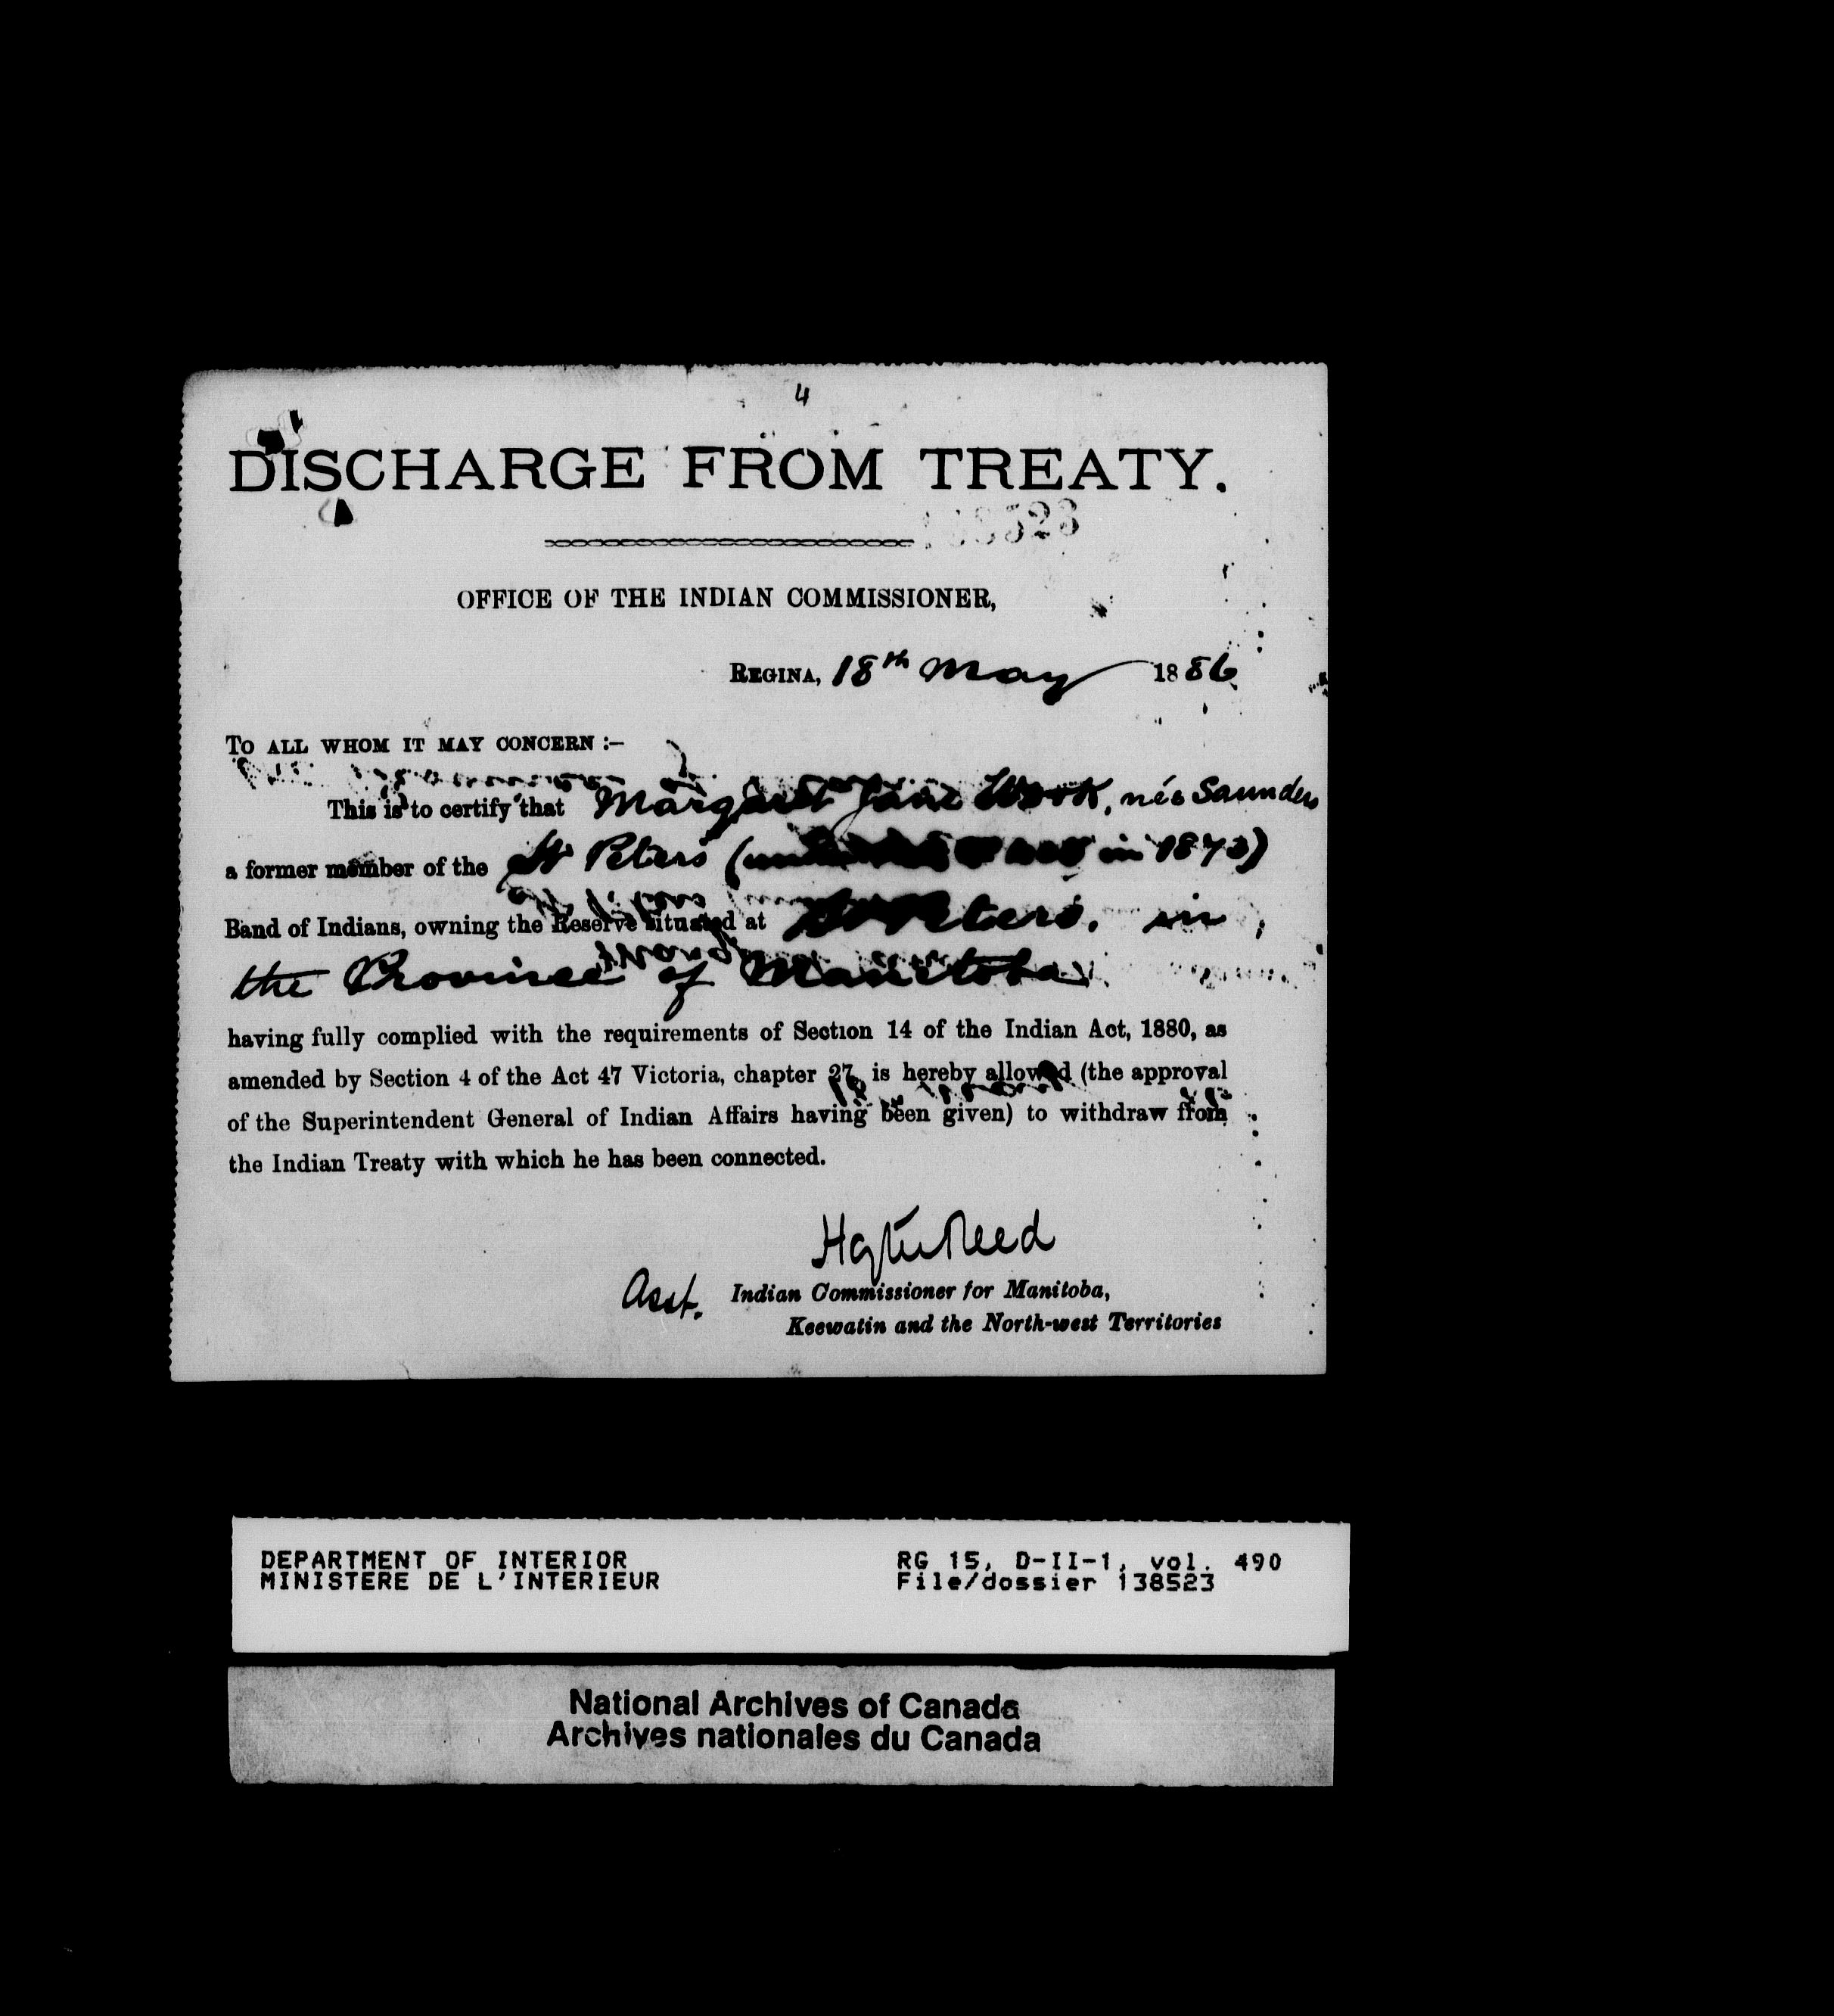 4
DISCHARGE FROM TREATY.
OFFICE OF THE INDIAN COMMISSIONER,
REGINA, 18th May 1886
TO ALL WHOM IT MAY CONCERN :-
This is to certify that Margaret Jane née Saunders
a former member of the St Peters ( in 1873)
Band of Indians, owning the Reserve situated at St Peters, in
the Province of Manitoba
having fully complied with the requirements of Section 14 of the Indian Act, 1880, as
amended by Section 4 of the Act 47 Victoria, chapter 27, is hereby allowed (the approval
of the Superintendent General of Indian Affairs having been given) to withdraw from
the Indian Treaty with which he has been connected.
Hayter Reed
Asst. Indian Commissioner for Manitoba,
Keewatin and the North-west Territories
DEPARTMENT OF INTERIOR RG 15, D-II-1, vol. 490
MINISTERE DE L'INTERIEUR File/dossier 138523
National Archives of Canada
Archives nationales du Canada